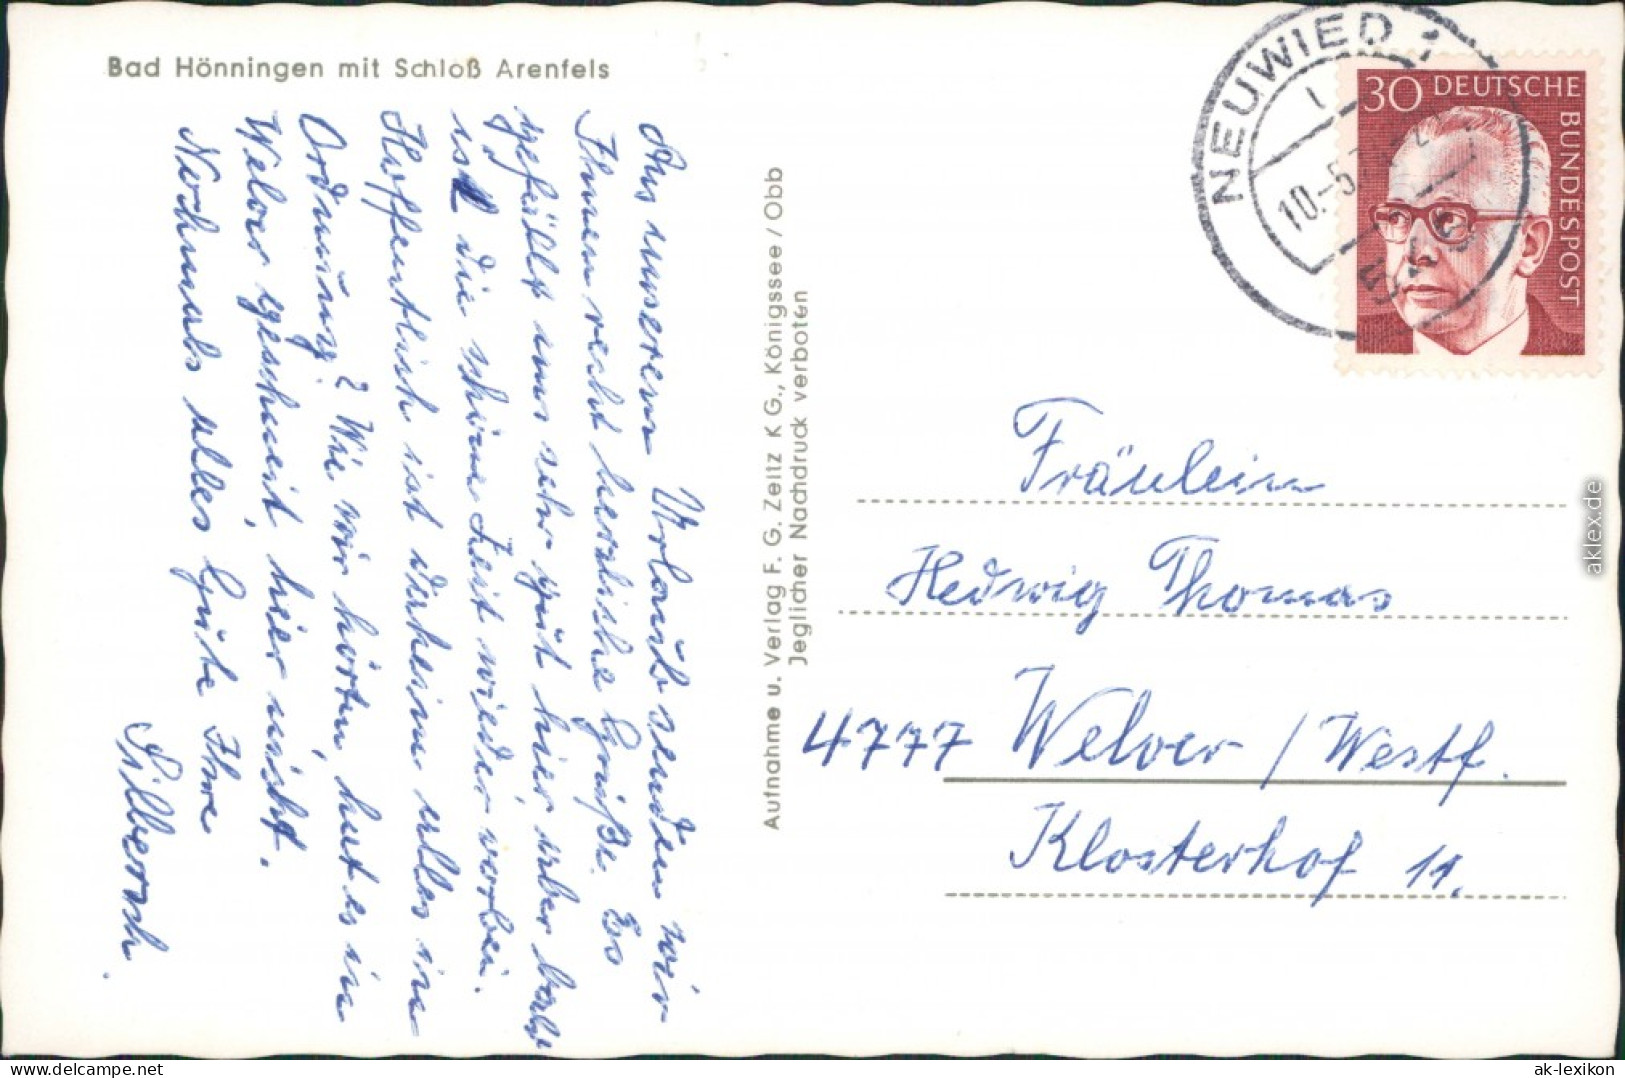 Bad Hönningen mit Schloß Arenfels
Aus unserem Urlaub senden wir
Ihnen recht herzliche Grüße. Es
gefällt uns sehr gut hier, aber bald
ist die schöne Zeit wieder vorbei.
Hoffentlich ist daheim alles in
Ordnung? Wie wir hörten, hat es in
Welver geschneit, hier nicht.
Nochmals alles Gute Ihre
Silbersch.
Aufnahme u. Verlag F. G. Zeitz K G., Königssee / Obb
Jeglicher Nachdruck verboten
NEUWIED 1
30 DEUTSCHE
BUNDESPOST
Fräulein
Hedwig Thomas
4777 Welver / Westf.
Klosterhof 11.
aklex.de
oldthing.de
ak-lexikon